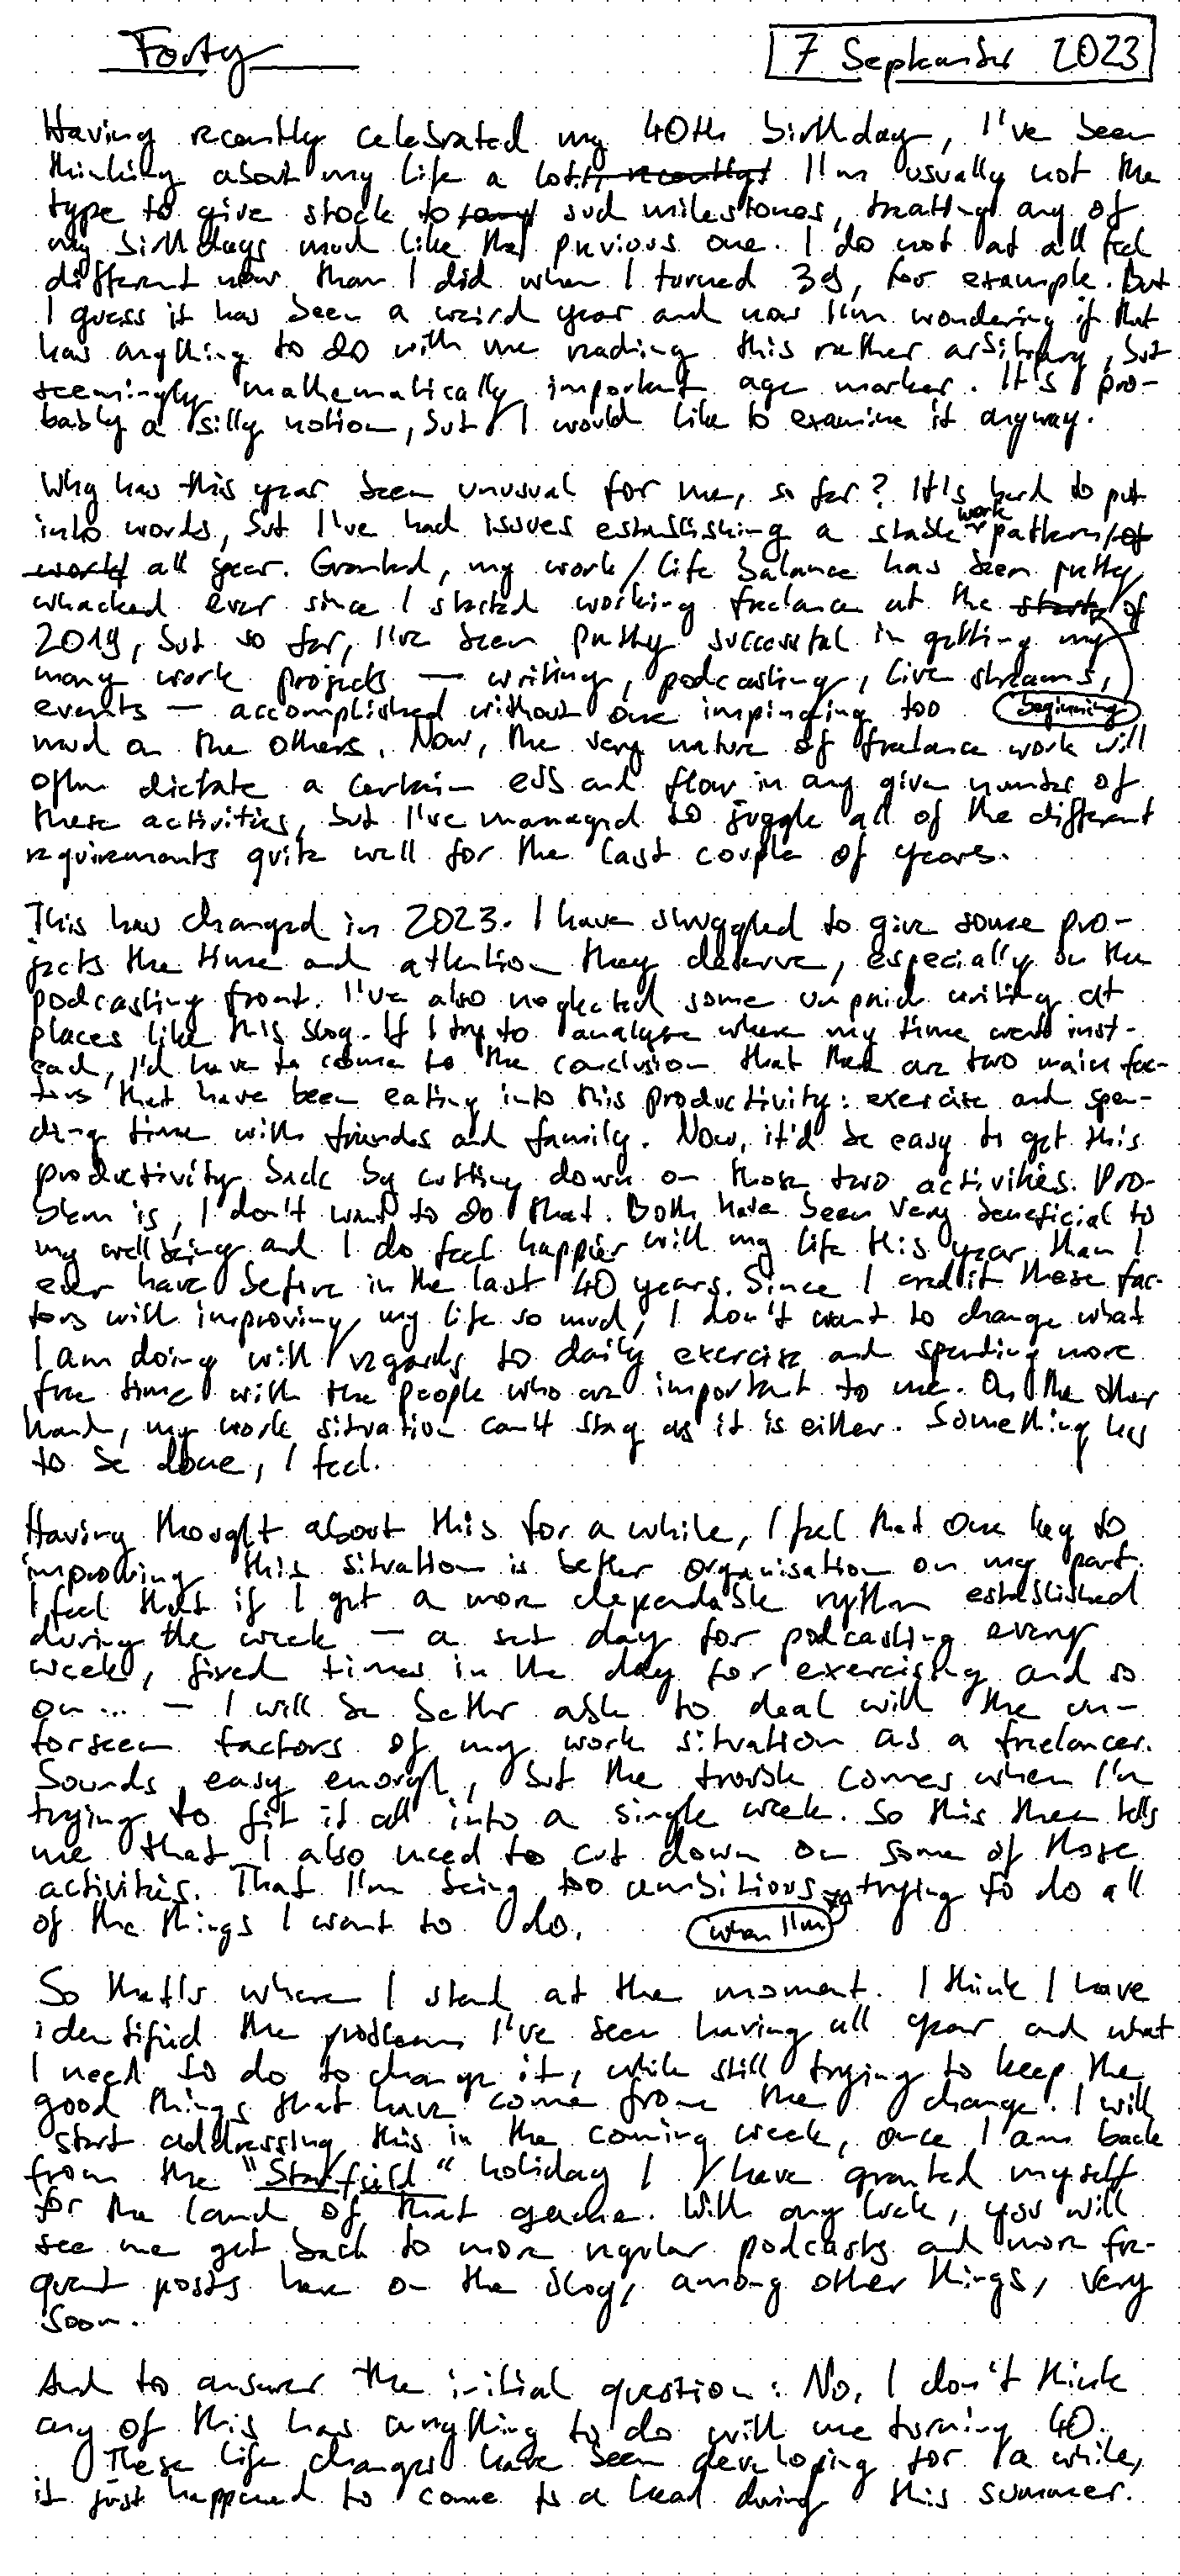 Forty
7 September 2023
Having recently celebrated my 40th birthday, I've been
thinking about my life a lot. recently. I'm usually not the
type to give stock to such milestones, treating any of
my birthdays much like the previous one. I do not at all feel
different now than I did when I turned 39, for example. But
I guess it has been a weird year and now I'm wondering if that
has anything to do with me reading this rather arbitrary, but
seemingly mathematically important age marker. It's pro-
bably a silly notion, but I would like to examine it anyway.
Why has this year been unusual for me, so far? It's hard to put
into words, but I've had issues establishing a stable work pattern of
work all year. Granted, my work/life balance has been pretty
whacked ever since I started working freelance at the start beginning of
2019, but so far, I've been pretty successful in getting my
many work projects — writing, podcasting, live streams,
events — accomplished without one impinging too
much on the others. Now, the very nature of freelance work will
often dictate a certain ebb and flow in any given number of
these activities, but I've managed to juggle all of the different
requirements quite well for the last couple of years.
This has changed in 2023. I have struggled to give some pro-
jects the time and attention they deserve, especially on the
podcasting front. I've also neglected some unpaid writing at
places like this blog. If I try to analyse where my time went inst-
ead, I'd have to come to the conclusion that there are two main fac-
tors that have been eating into this productivity: exercise and spen-
ding time with friends and family. Now, it'd be easy to get this
productivity back by cutting down on those two activities. Pro-
blem is, I don't want to do that. Both have been very beneficial to
my wellbeing and I do feel happier with my life this year than I
ever have before in the last 40 years. Since I credit these fac-
tors with improving my life so much, I don't want to change what
I am doing with regards to daily exercise and spending more
free time with the people who are important to me. On the other
hand, my work situation can't stay as it is either. Something has
to be done, I feel.
Having thought about this for a while, I feel that one key to
improving this situation is better organisation on my part.
I feel that if I get a more dependable rythm established
during the week — a set day for podcasting every
week, fixed times in the day for exercising and so
on... — I will be better able to deal with the un-
forseen factors of my work situation as a freelancer.
Sounds easy enough, but the trouble comes when I'm
trying to fit it all into a single week. So this then tells
me that I also need to cut down on some of those
activities. That I'm being too ambitious when I'm trying to do all
of the things I want to do.
So that's where I stand at the moment. I think I have
identified the problem I've been having all year and what
I need to do to change it, while still trying to keep the
good things that have come from the change. I will
start addressing this in the coming week, once I am back
from the "Starfield" holiday I have granted myself
for the launch of that game. With any luck, you will
see me get back to more regular podcasts and more fre-
quent posts here on the blog, among other things, very
soon.
And to answer the initial question: No, I don't think
any of this has anything to do with me turning 40.
These life changes have been developing for a while,
it just happened to come to a head during this summer.